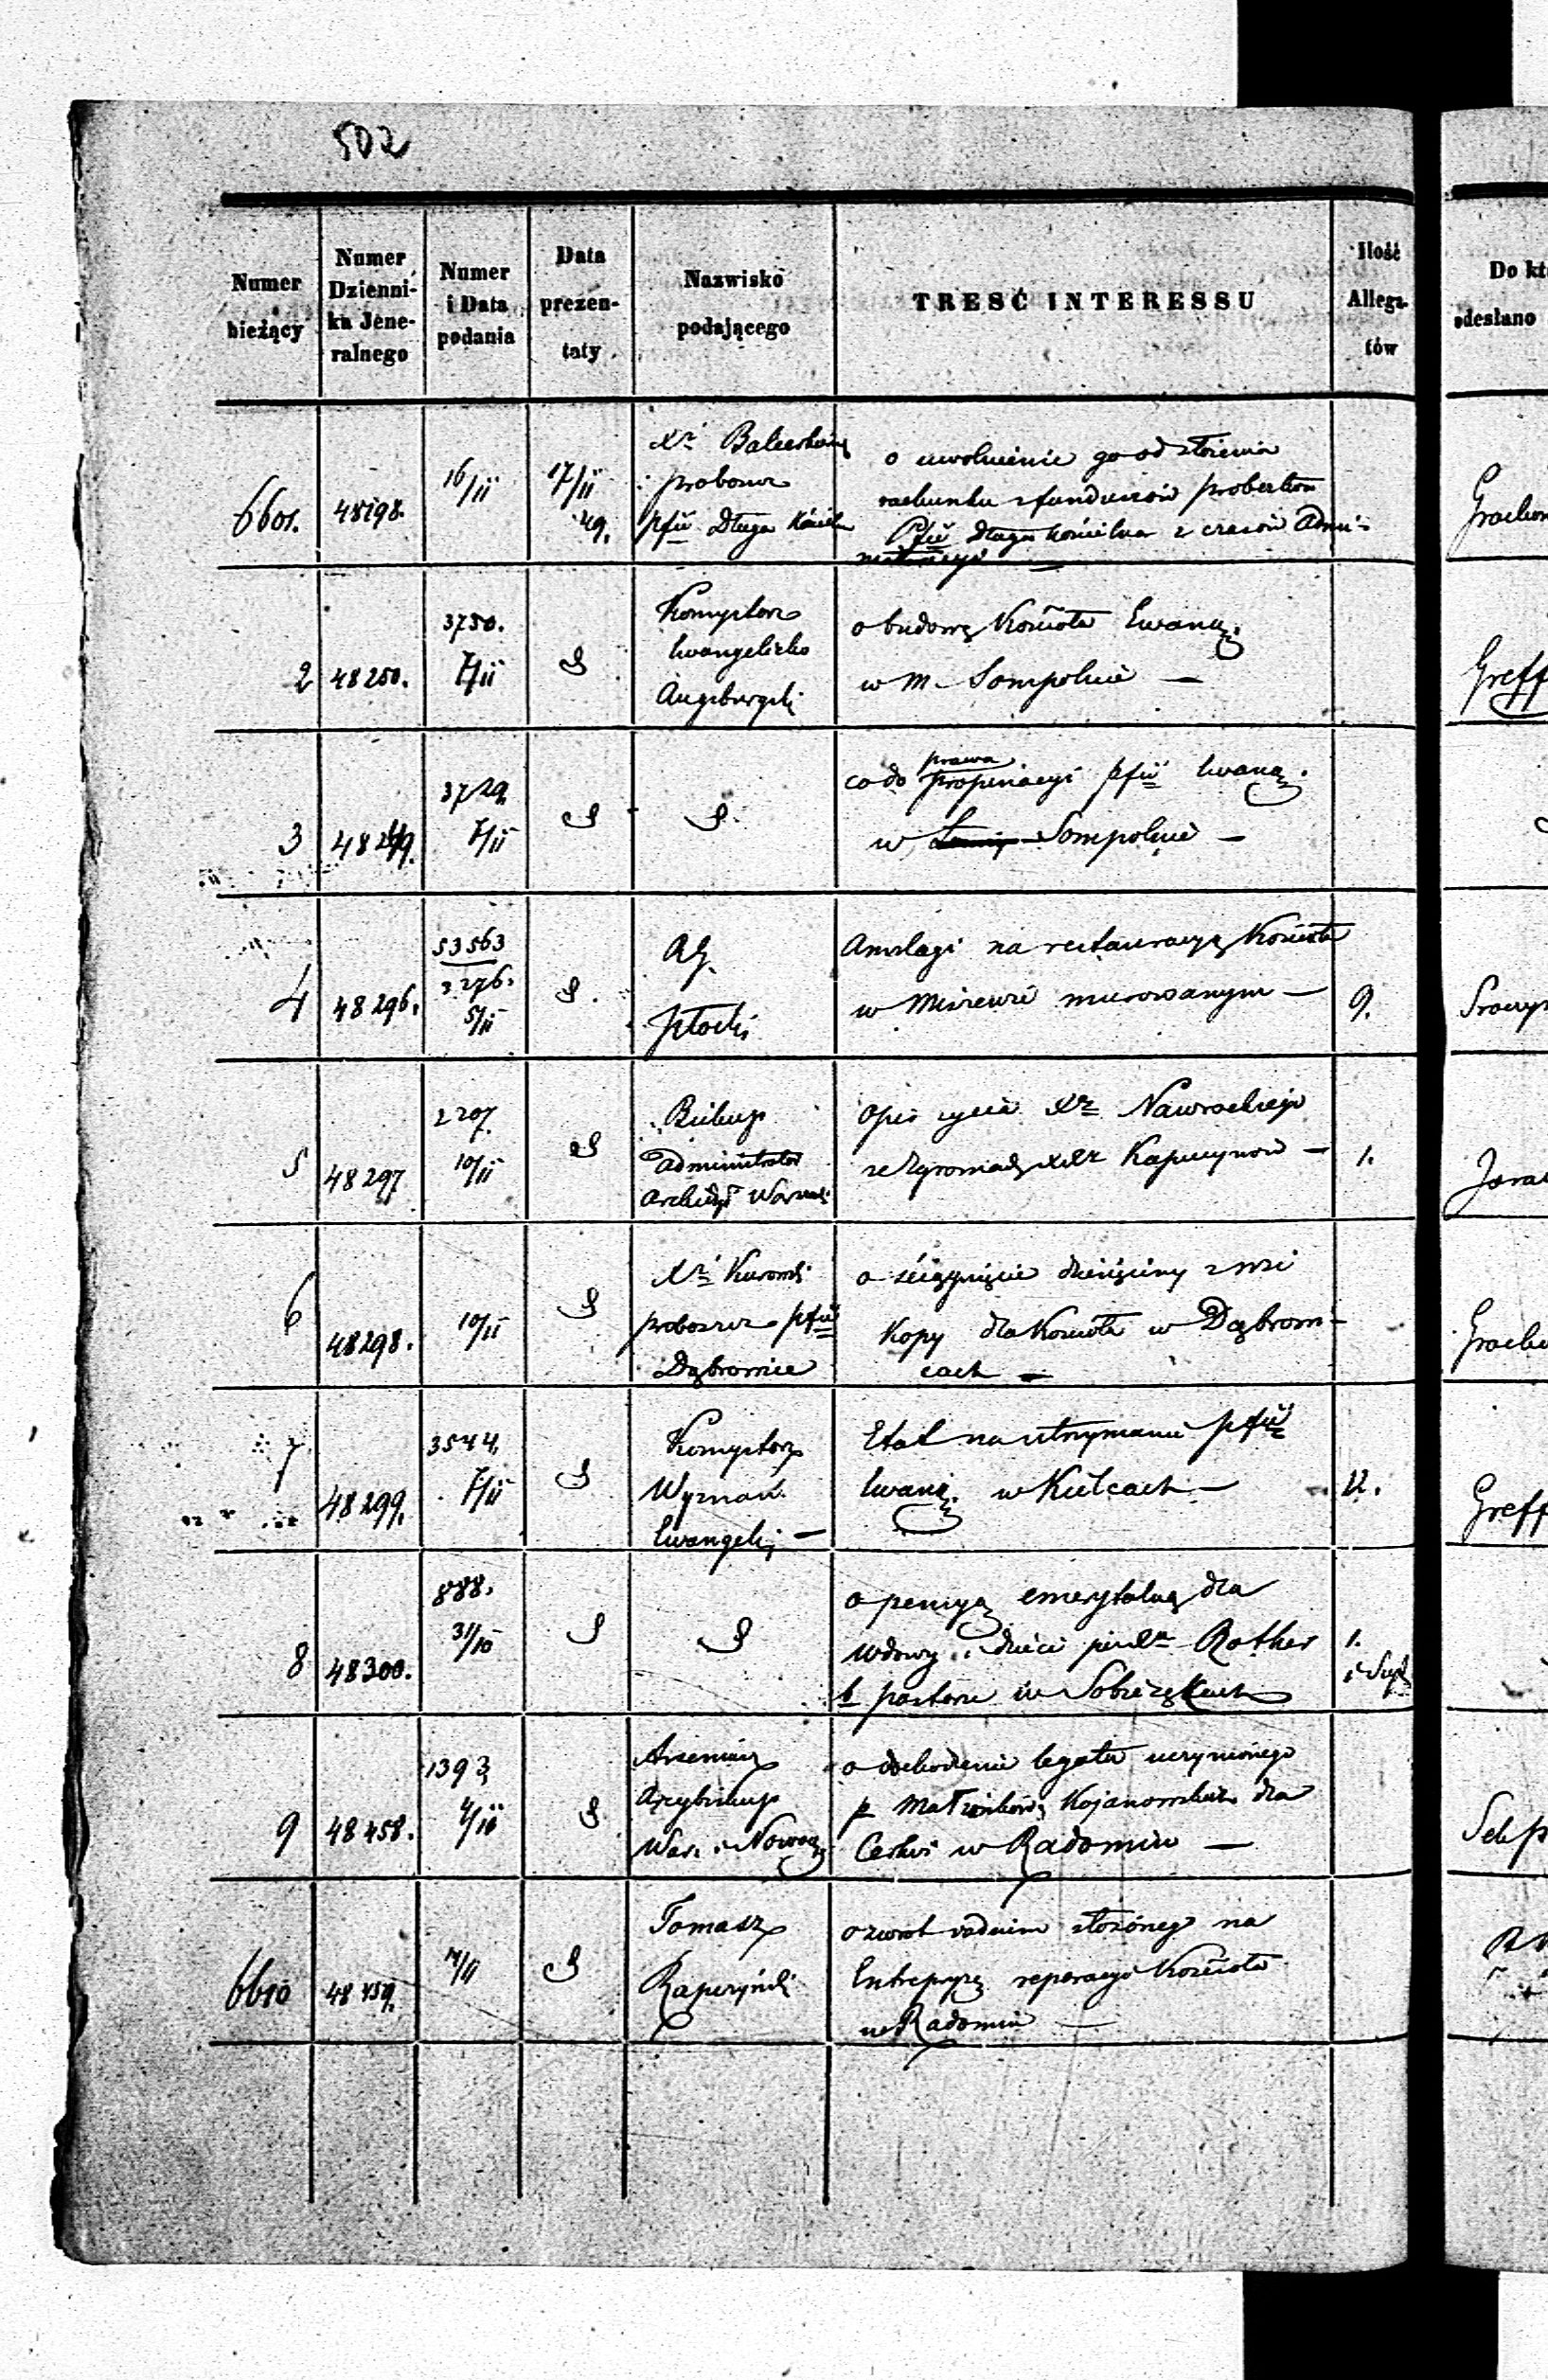 502
Numer bieżący
Numer Dzienni- ka Jene- ralnego
Numer i Data podania
Data prezen- taty
Nazwisko podającego
TREŚĆ INTERESSU
Ilość Allega- tów
Do kt
odesłano
6601. 48198. 16/11 17/11 49.
proboszcz
pfii Długa Kościel
o uwolnienie go od złożenia
rachunku z funduszów probostwa
Pfii Długa kościelna z czasów Admi-
nistracyi —
2 48250. 3730. 7/11
Konsystorz
Ewangelicko
Augsburgski
o budowę Kościoła Ewang.
w m. Sompolnie —
Greff
3 48249. 3729. 7/11
co do prawa propinacyi pfii Ewang.
w Sompolnie —
4 48296. 53563 3276. 5/11
RG.
Płocki
Anszlagi na restauracyę Kościoła
w Miszewie murowanym — 9.
5 48297 2207. 10/11
Biskup
Administrator
Archidyi Warszaws
Opis życia Xdza Nawrockiego
ze Zgromadz. XXży Kapucynów — 1.
6 48298. 10/11
proboszcz pfii
Dąbrowice
o ściągnięcie dziesięciny z wsi
Kopy dla Kościoła w Dąbrowi-
cach —
7 48299. 3544. 7/11
Konsystorz
Wyznań
Ewangeli; —
Etat na utrzymanie pfii
Ewang. w Kielcach — 12.
Greff
8 48300. 888. 31/10
o pensyą emerytalną dla
wdowy i dzieci po Rother
b pastorze w Sobiesękach
1.
9 48458. 1393. 4/11
Arseniusz
Arcybiskup
War. i Nowog.
o dochodzenie legatu uczynionego
p Małżonków Kojanowskich dla
Cerkwi w Radomiu —
6610 48459. 4/11
Tomasz
o zwrot vadium złożonego na
Entrepryzę reperacyi Kościoła
w Radomiu —